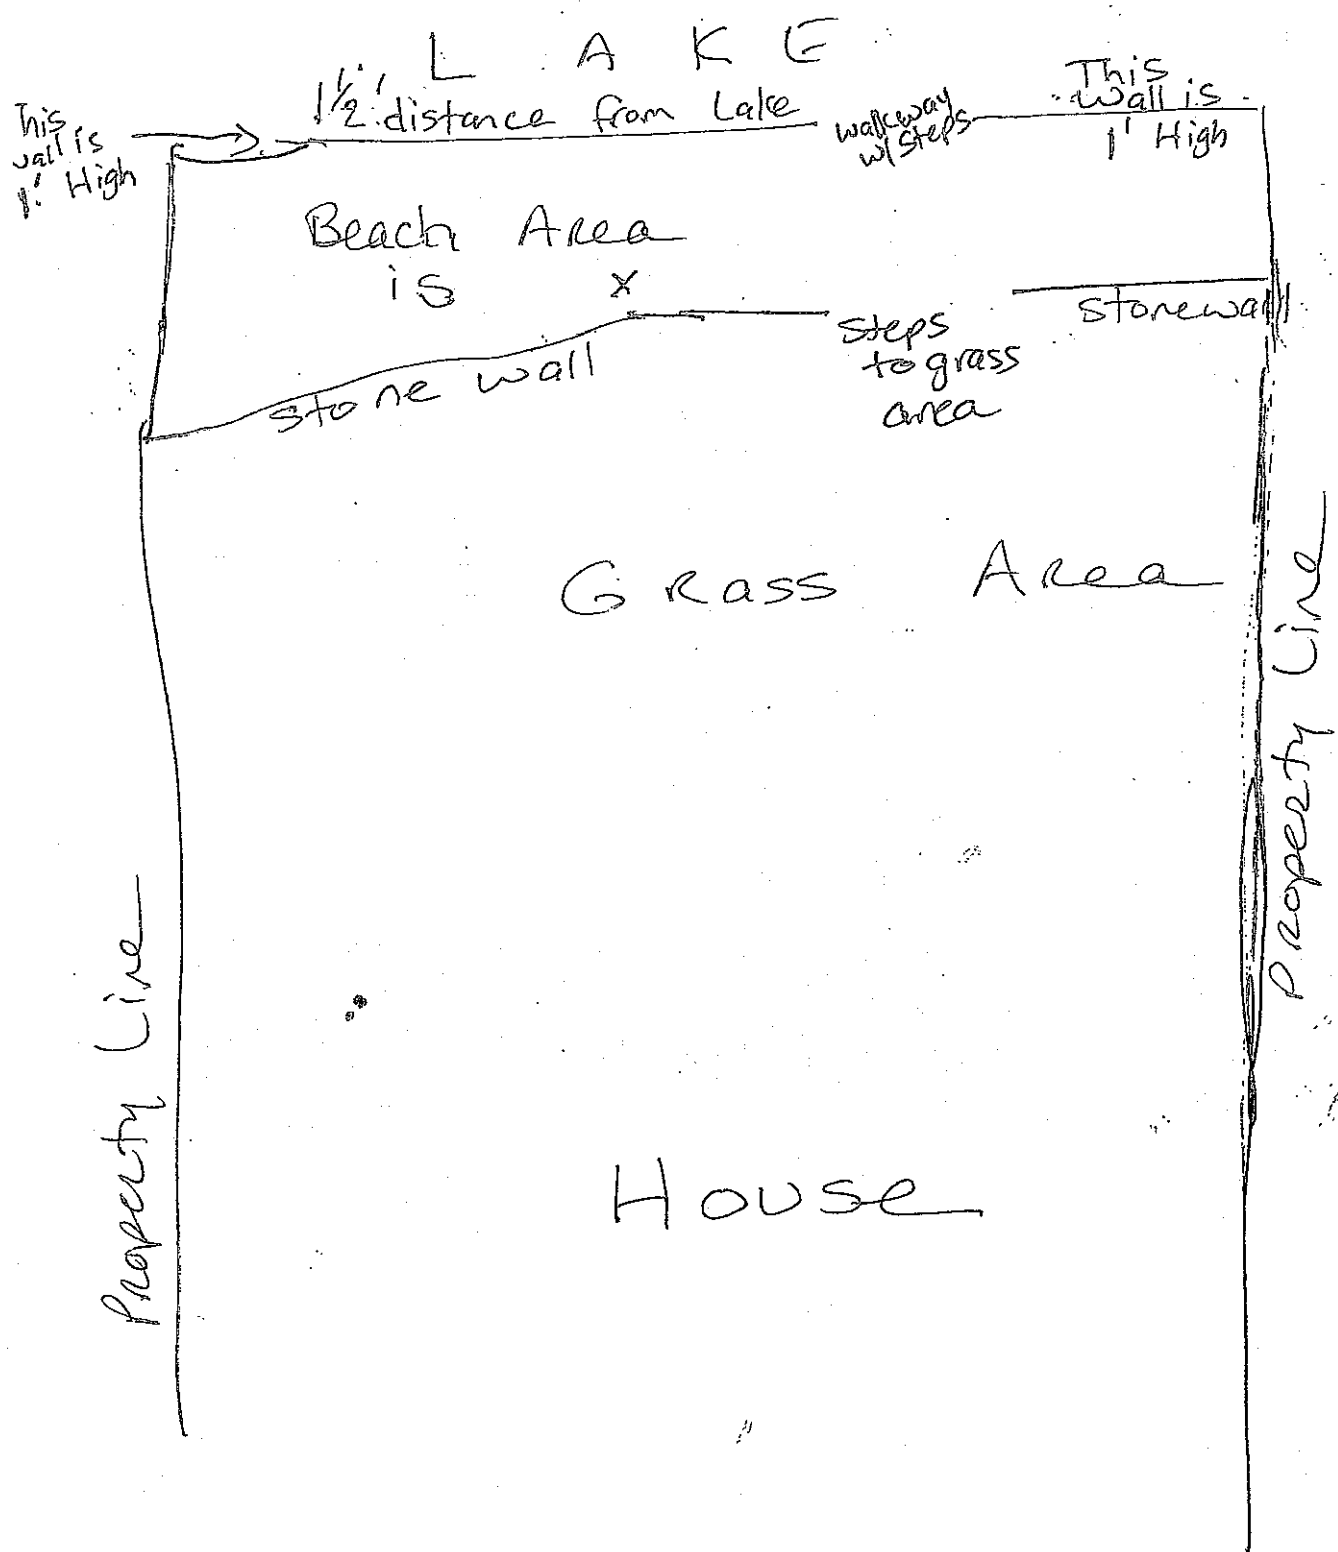 L A K E
This
wall is
1' High
1 1/2' distance from Lake
walkway
w/ steps
This
wall is
1' High
Beach Area
is x
stone wall
steps
to grass
area
stonewall
Grass Area
Property Line
Property Line
House